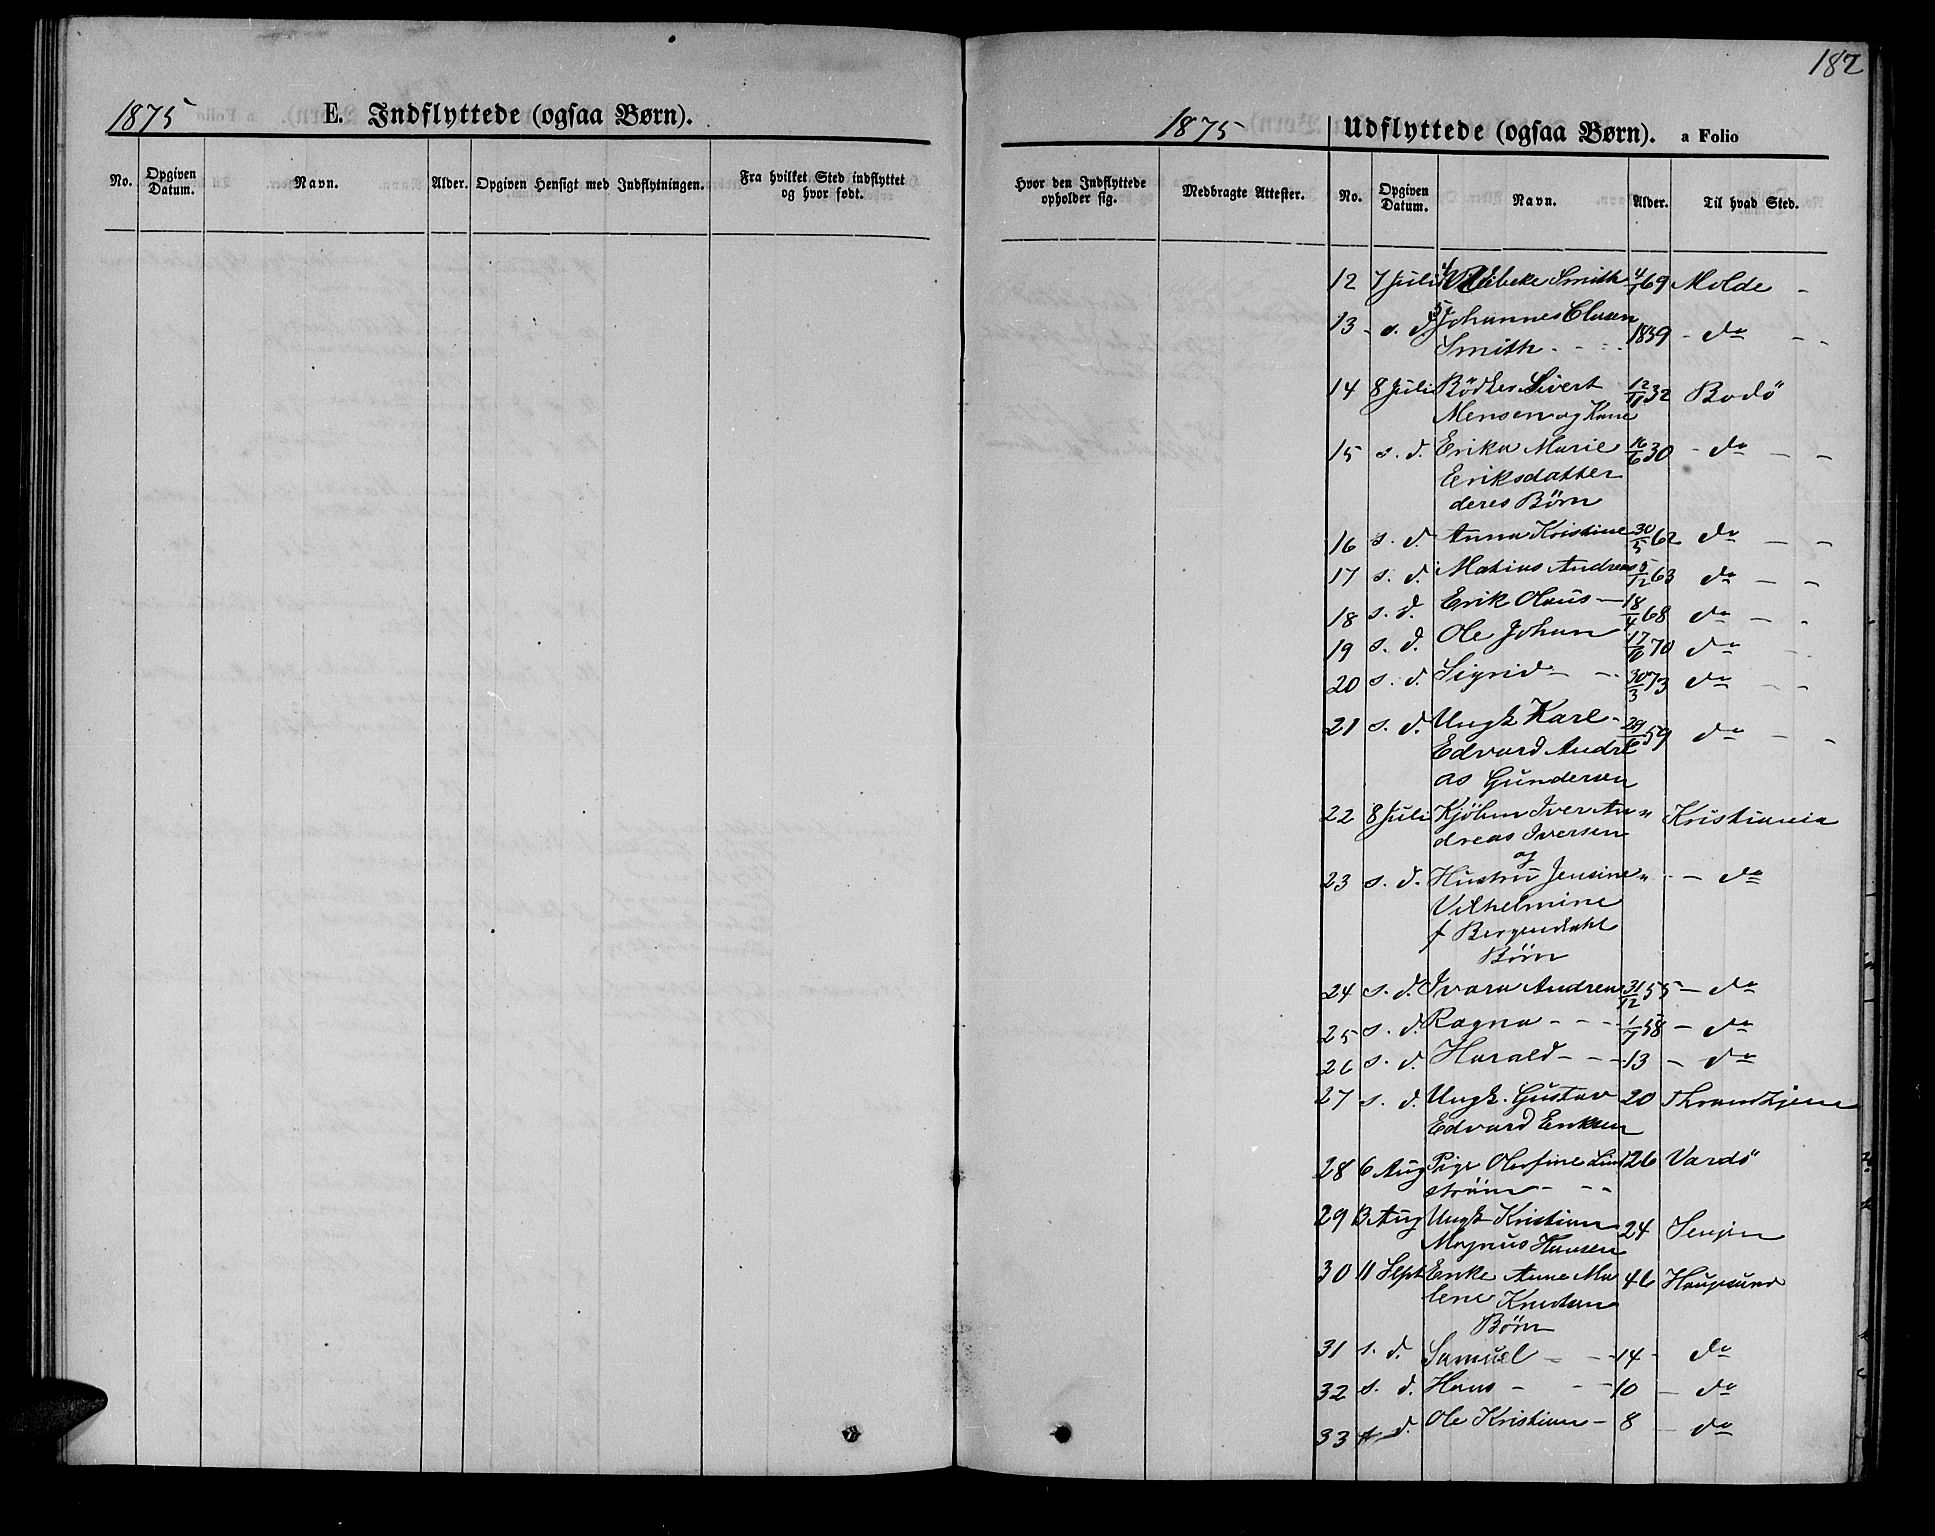 182
1875 E. Indflyttede (ogsaa Børn).
No. Opgiven Datum. Navn. Alder. Opgiven Hensigt med Indflytningen. Fra hvilket Sted indflyttet og hvor født.
1875 Udflyttede (ogsaa Børn). a Folio
Hvor den Indflyttede opholder sig. Medbragte Attester. No. Opgiven Datum. Navn. Alder. Til hvad Sted.
12 7 Juli Vibeke Smith 4/1 69 Molde -
13 - s. d. Johannes Clasen 1839 - do - -
Smith - - - -
14 8 Juli Bödker Sivert 12/11 32 Bodö
Mensen og Kone
15 s. d. Erika Marie 16/6 30 - do - -
Eriksdatter
deres Börn
16 s. d. Anna Kristine 30/5 62 do - -
17 s. d. Matias Andreas 5/12 63 do - -
18 s. d. Erik Olaus - 18/4 68 do - -
19 s. d. Ole Johan 17/10 70 do - -
20 s. d. Sigrid - - 30/3 73 do - -
21 s. d. Ungk Karl - 29/6 59 do - -
Edvard Andre
as Gundersen
22 8 Juli Kjöbm Iver An " Kristiania
dreas Iversen
og
23 s. d. Hustru Jensine " - do
Vilhelmine
f Bergendahl
Börn
24 s. d. Ivara Andrea 31/12 55 - do
25 s. d. Ragna - - - 1/7 58 - do
26 s. d. Harald - - - 13 - do
27 s. d. Ungk. Gustav 20 Throndhjem
Edvard Eriksen
28 6 Aug Pige Olufine Lind 26 Vardö
ström - - -
29 13 Aug Ungk Kristian 24 Senjen
Magnus Hansen
30 11 Sept Enke Anne Ma 46 Haugesund
lene Knudsen
Börn
31 s. d. Samuel - - 14 - do
32 s. d. Hans - - - 10 - do
33 s. d. Ole Kristian - 8 - do